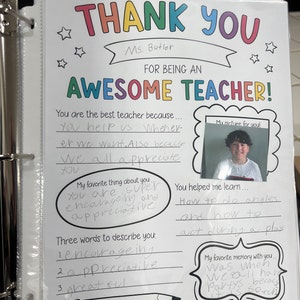 THANK YOU
Ms. Butler
FOR BEING AN
AWESOME TEACHER!
You are the best teacher because...
you help us whener
er we want. Also becaus
we all appreciate
you
My picture for you!
My favorite thing about you
you are super
encouraging and
appreciative
You helped me learn...
How to
and how
not giving up
Three words to describe you:
1 encouraging
2 appreciative
3 great
My favorite memory with you
Was when